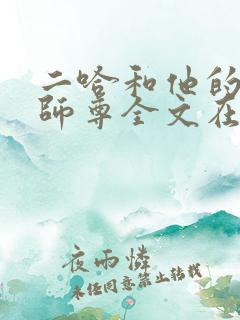 二哈和他的
師尊全文在
夜雨憐
未经同意禁止转载